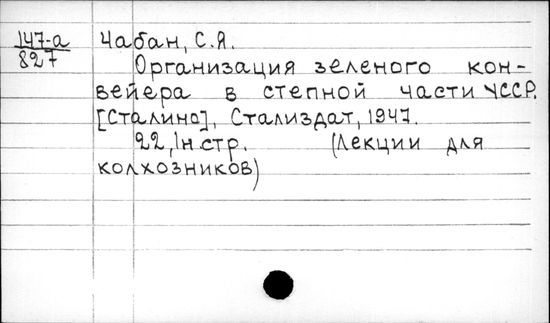 147-а
827
Чабан, С.Я.
Организация зеленого кон-
вейера в степной части УССР.
[Сталино], Стализдат, 1947.
22, 1н.стр. (Лекции для
колхозников)